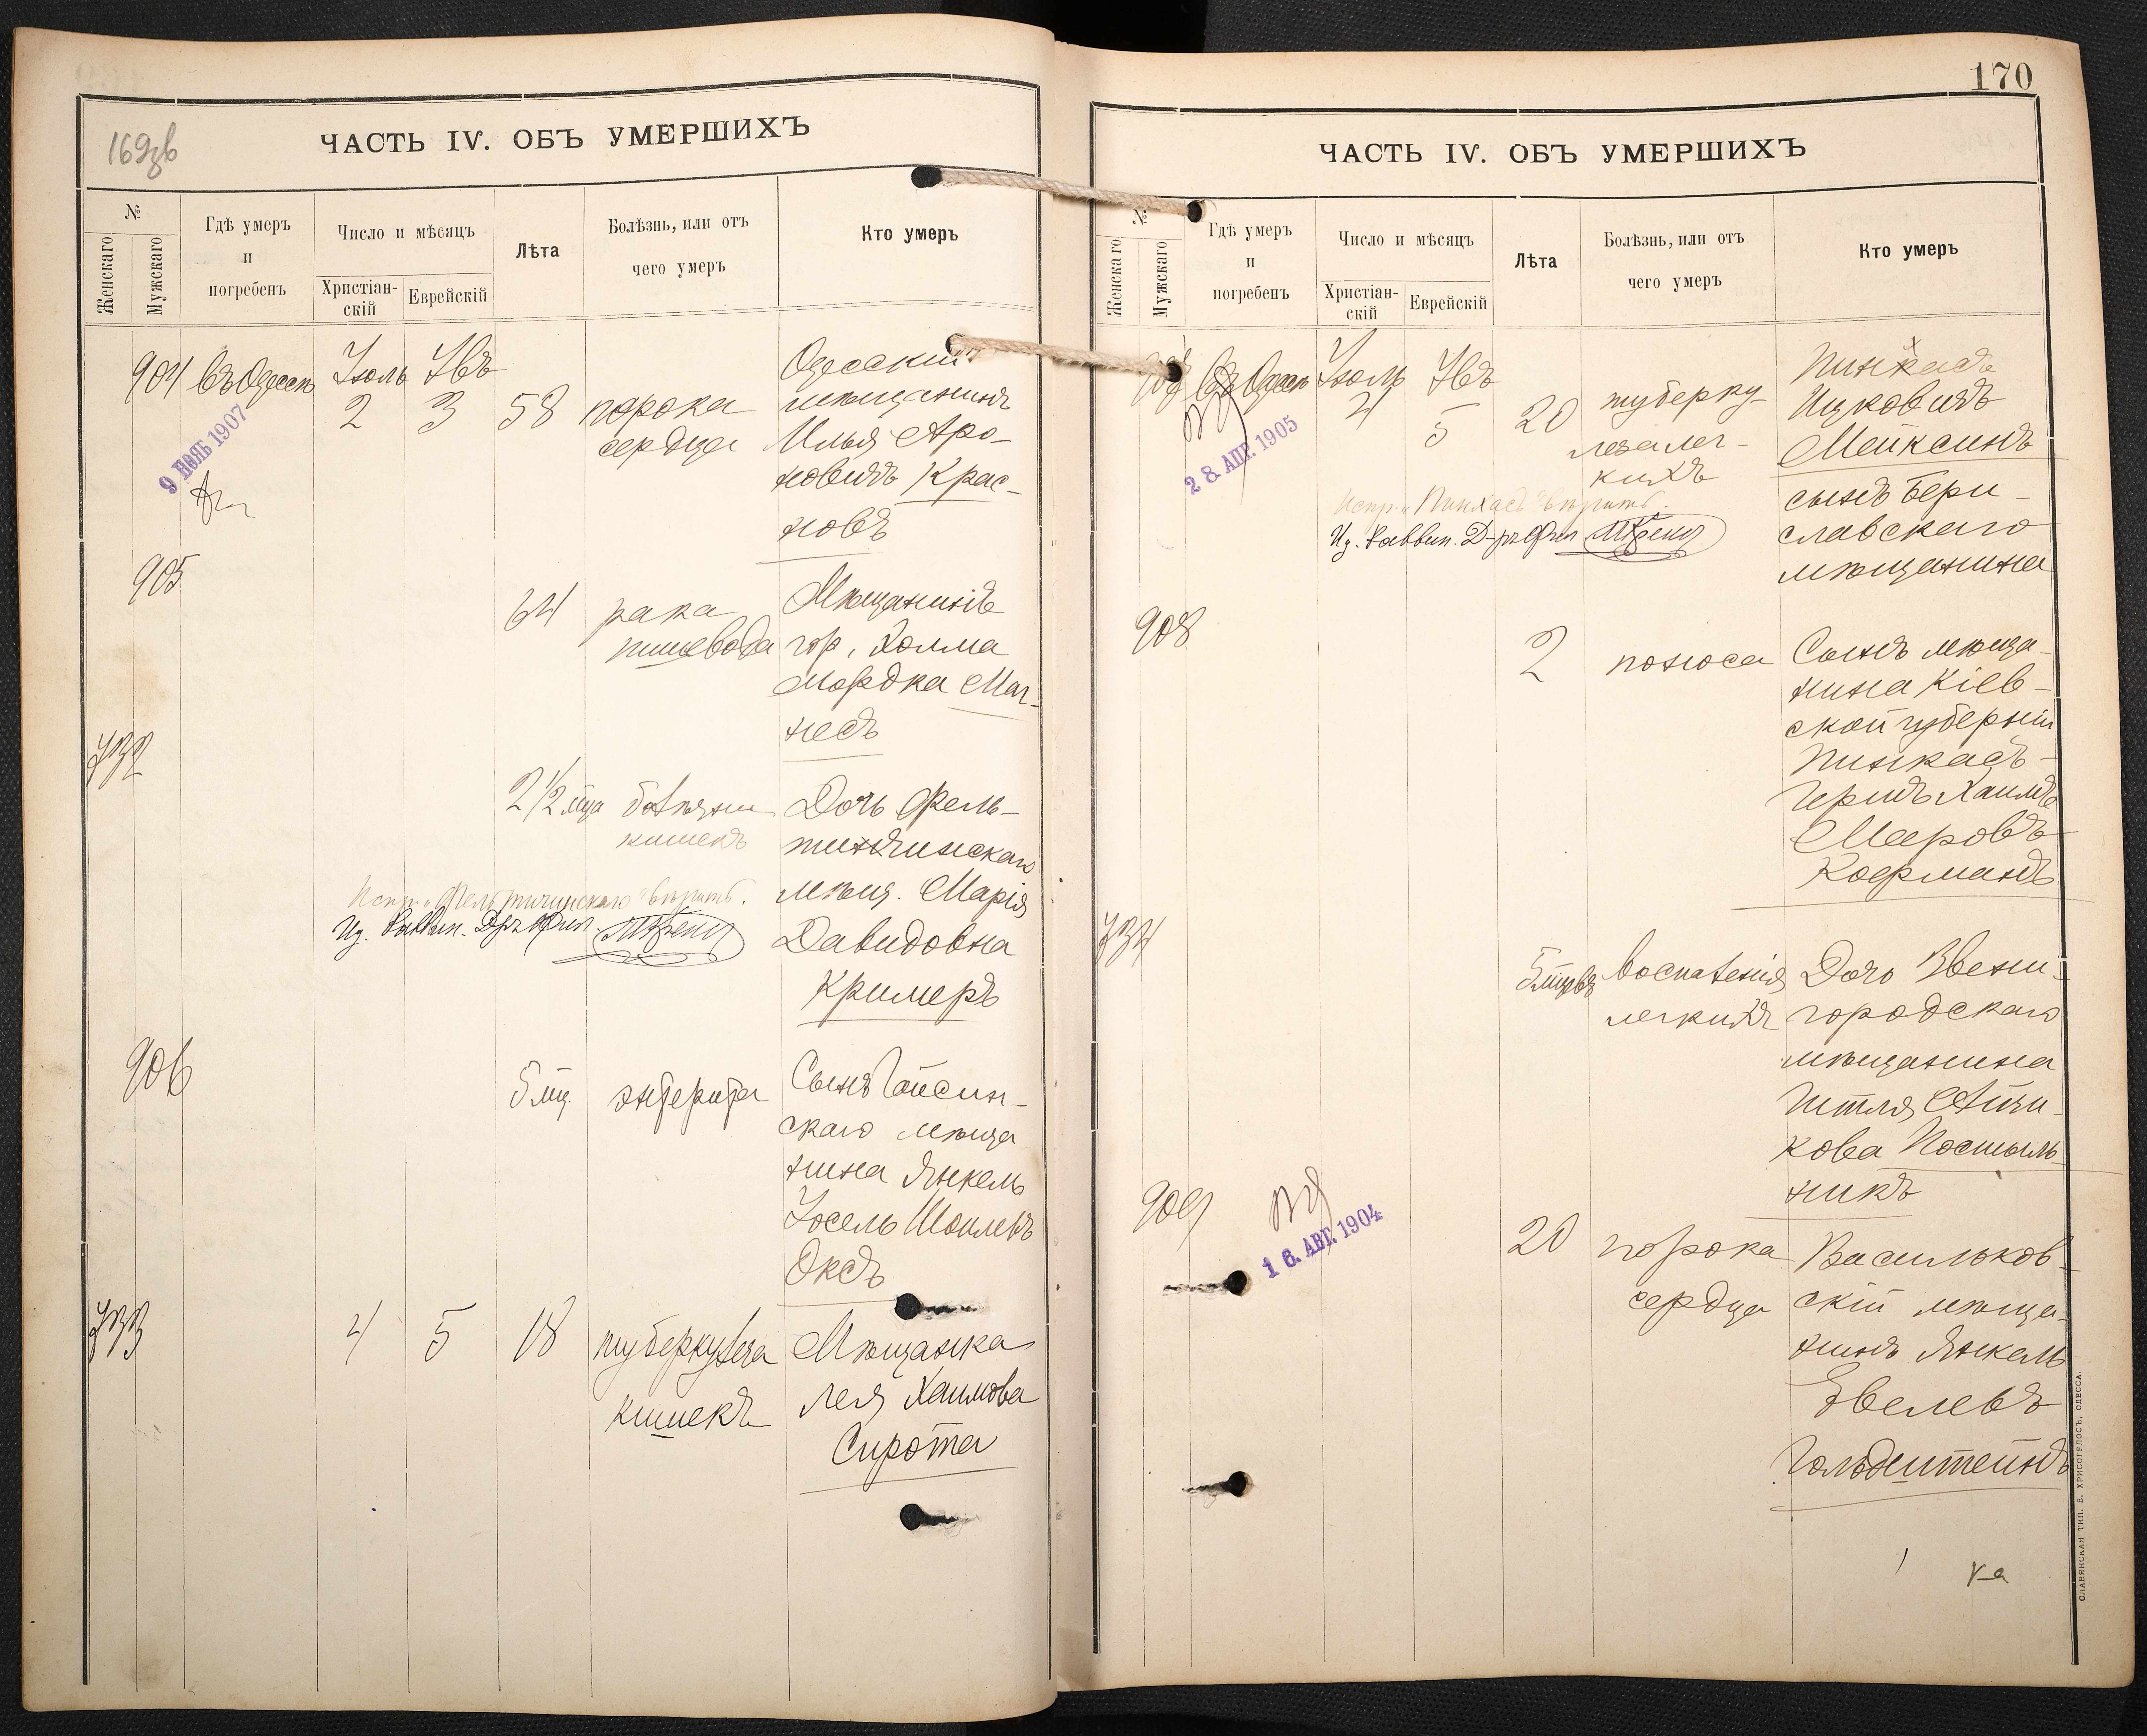 169об
ЧАСТЬ IV. ОБЪ УМЕРШИХЪ
№
Женскаго
Мужскаго
Гдѣ умеръ
и
погребенъ
Число и мѣсяцъ
Христіан-
скій
Еврейскій
Лѣта
Болѣзнь, или отъ
чего умеръ
Кто умеръ
904 въ Одессѣ Іюль Ābъ
2 3 58 порока
сердца
Одесскій
мѣщанинъ
Илья Аро-
новичъ Крас-
новъ
9 ІЮЛЬ 1907
905
64 рака
пищевода
Мѣщанинъ
гор. Холма
Мордка Маг-
несъ
732
2 1/2 мца болѣзни
кишекъ
Дочь Фель-
штинскаго
мѣщ. Марія
Давидовна
Кримеръ
906
5 мц. энтерита
Сынъ Гайсин-
скаго мѣща
нина Янкель
Іосель Шоилевъ
Оксъ
733
4 5 18 туберкулеза
кишекъ
Мѣщанка
Лея Хаимова
Сирота
170
ЧАСТЬ IV. ОБЪ УМЕРШИХЪ
№
Женскаго
Мужскаго
Гдѣ умеръ
и
погребенъ
Число и мѣсяцъ
Христіан-
скій
Еврейскій
Лѣта
Болѣзнь, или отъ
чего умеръ
Кто умеръ
907 въ Одессѣ Іюль
4 5 20 туберку-
леза лег-
кихъ
Пинхасъ
Ицковичъ
Мейксинъ
сынъ Бери-
славскаго
мѣщанина
28. АПР. 1905
Испр. „Пинхасъ" вѣрить.
908
2 поноса
Сынъ мѣща-
нина Кіев-
ской губерніи
Пинкасъ-
Гершъ Хаимъ
Мееровъ
Кофманъ
734
5 мцевъ воспаленія
легкихъ
Дочь Звени-
городскаго
мѣщанина
Итля Айзи-
кова Постыль-
никъ
909
16. АВГ. 1904
20 порока
сердца
Васильков-
скій мѣща-
нинъ Янкель
Эвелевъ
Гольдштейнъ
СЛАВЯНСКАЯ ТИП. Е. ХРИСОГЕЛОСЪ, ОДЕССА.